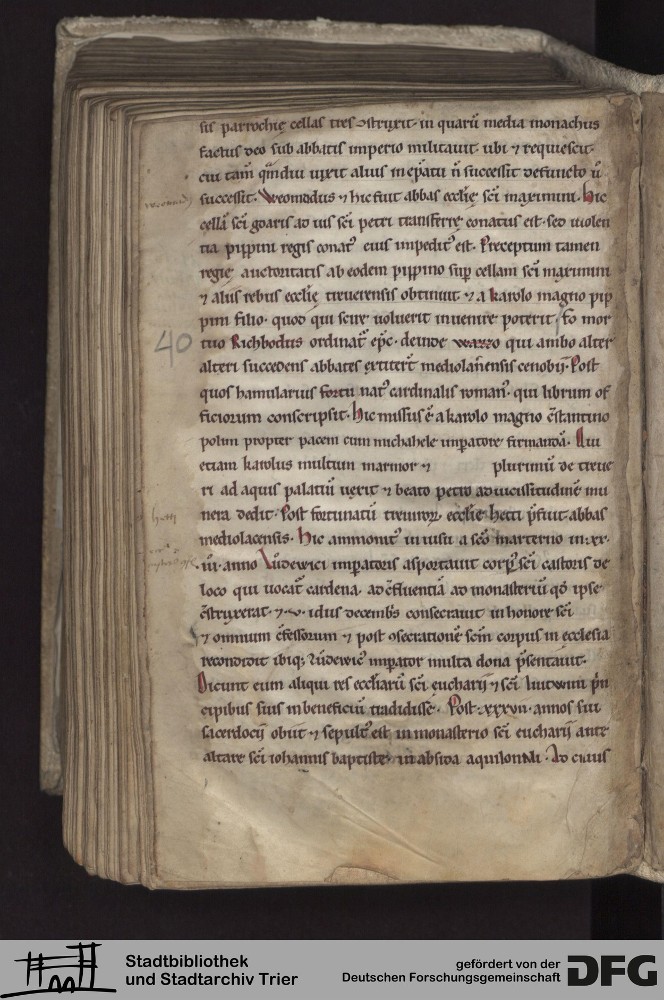 sis parrochię cellas tres ɔstruxit· in quarū media monachus
factus deo sub abbatis imperio militauit· ubi ⁊ requiescit·
cui tam̄ qmdiu uixit alius in ep̄atu n̄ successit defuncto ū
successit· Weomadus ⁊ hic fuit abbas eccłię sc̄i maximini· Hic
cellā sc̄i goaris ad ius sc̄i petri transferre conatus est· sed uiolen
tia pippini regis conatꝰ eius impeditꝰ est· Preceptum tamen
regię auctoritatis ab eodem pippino sup cellam sc̄i maximini
⁊ aliis rebus eccłię treuerensis obtinuit ⁊ a karolo magno pip
pini filio· quod qui scire uoluerit inuenire poterit· Eo mor
tuo Richbodus ordinatꝰ ep̄c· deinde wazzo qui ambo alter
alteri succedens abbates extiter̄t mediolanensis cenobij· Post
quos hamularius fortunatꝰ cardinalis romanꝰ· qui librum of
ficiorum conscripsit· Hic missus ē a karolo magno c̄stantino
polim propter pacem cum michahele imperatore firmandā· Qui
etiam karolus multum marmor ⁊ plurimū de treue
ri ad aquis palatiū uexit ⁊ beato petro ad uicissitudinē mu
nera dedit· Post fortunatū treuirorꝫ ecclie hetti p̄fuit abbas
mediolacensis· Hic ammonitꝰ in uisu a sc̄o marterno in·xx·
iii· anno Lūdewici imp̄atoris asportauit corpꝰ sc̄i castoris de
loco qui uocatꝰ cardena· ad c̄fluentiā ad monasteriū qd̄ ipse
c̄struxerat· ⁊·v· idus decembꝰ consecrauit in honore sc̄i
⁊ omnium c̄fessorum ⁊ post ɔsecrationē sc̄m corpus in ecclesia
recondidit ibiqꝫ Lūdewicꝰ imperator multa dona p̄sentauit·
Dicunt eum aliqui res eccłiarū sc̄i eucharij ⁊ sc̄i liutwini p̄n
cipibus suis in beneficiū tradidisse· Post·xxxvii· annos sui
sacerdocij obiit ⁊ sepultꝰ est in monasterio sc̄i eucharij ante
altare sc̄i iohannis baptistę· in absida aquilonali· Ad cuius
40
hetti
Stadtbibliothek
und Stadtarchiv Trier
gefördert von der
Deutschen Forschungsgemeinschaft
DFG